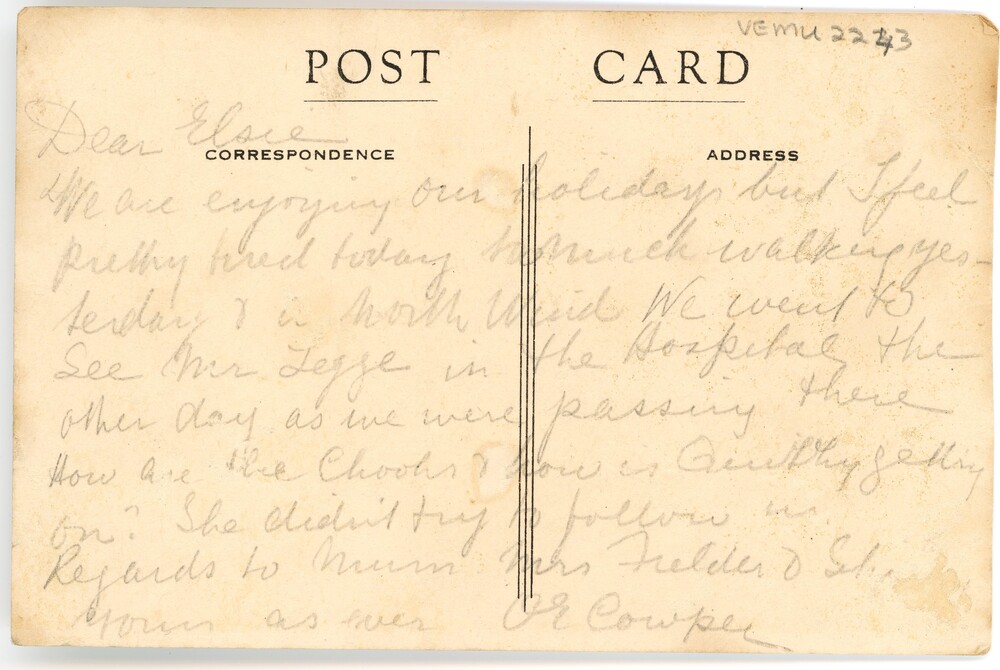 VEMU 2243
POST CARD
Dear Elsie
CORRESPONDENCE
ADDRESS
We are enjoying our holidays but I feel
pretty tired today to much walking yes-
terday & in North Wind We went to
See Mr Legge in the Hospital the
other day as we were passing there
How are the Chooks & how is getting
on? She didn't try to follow us.
Regards to Mum Mrs Fielder &
yours as ever E Cowper